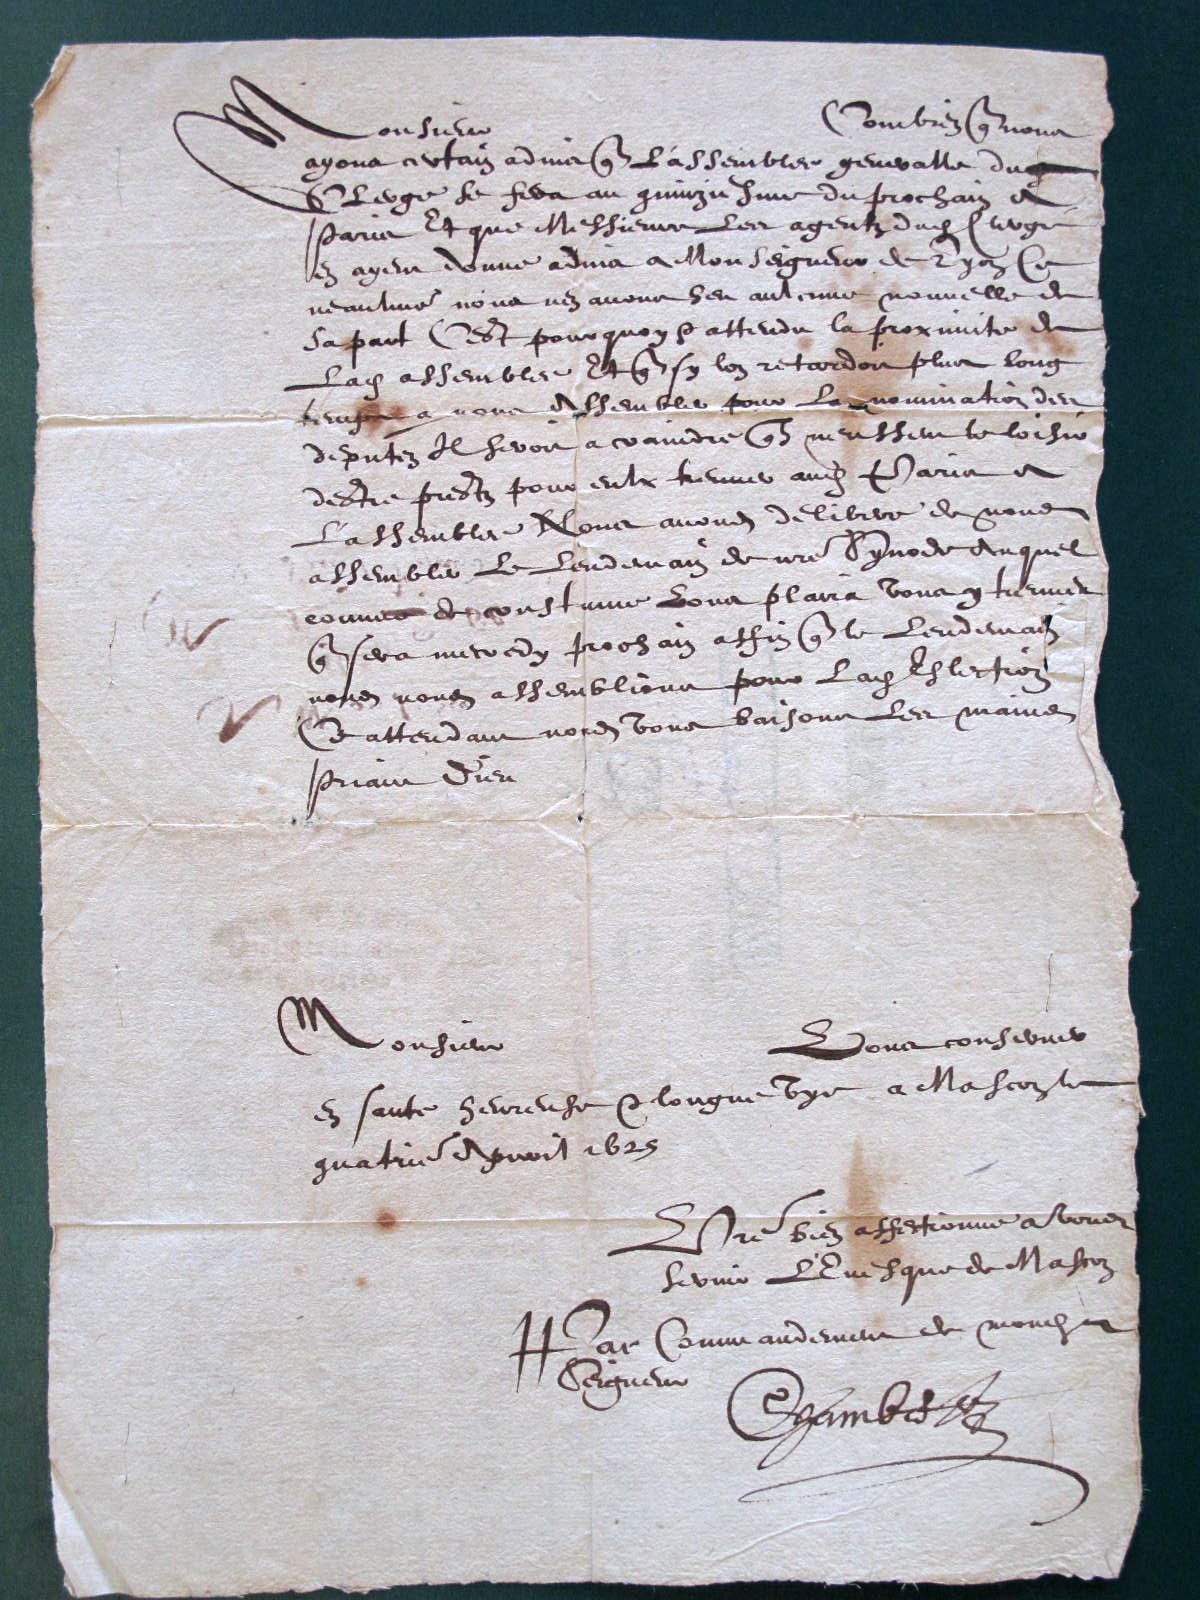 Monsieur Combien q̃ nous
ayons certain advis q̃ L'assemblee generalle du
Clerge se fera au quinziesme du prochain A
Paris Et que Messieurs Les agentz dud Clerge
en ayent donne advis a Monseigneur de Lyon Ce
neantmo͂ nous nen avons heu aulcune nouvelle de
sa part C'est pourquoy & attendu la proximite de
Lad assemblee Et q̃ sy lon retardoit plus long
temps a nous Assembler pour La nomination des
deputez Il seroit a craindre q̃ neussent le loisir
destre prestz pour eulx treuver aud Paris A
L'assemblee Nous avons delibere de nous
assembler Le Lendemain de nre͂ Synode Auquel
comme de coustume Vous plaira vous y treuver
q̃ sera mercredy prochain affin q̃ le Lendemain
nous nous assemblions pour Lad Eslection
En attendant nous vous baisons Les mains
Priant Dieu
Monsieur Vous conserver
en sante heureuse & longue vye a Mascon le
quatrie͂ Apvril 1625
Vre͂ bien affectionne a vous
servir L'Evesque de Mascon
Par Commandement de mond
Seigneur